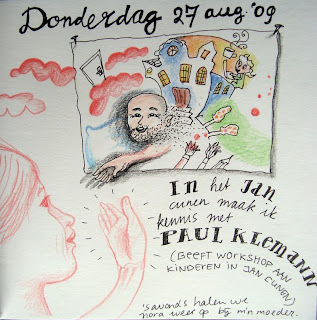 Donderdag 27 aug. '09
In het Jan
Cunen maak ik
kennis met
PAUL KLEMANN
(GEEFT WORKSHOP AAN
KINDEREN IN JAN CUNEN)
's avonds halen we
nora weer op bij m'n moeder.